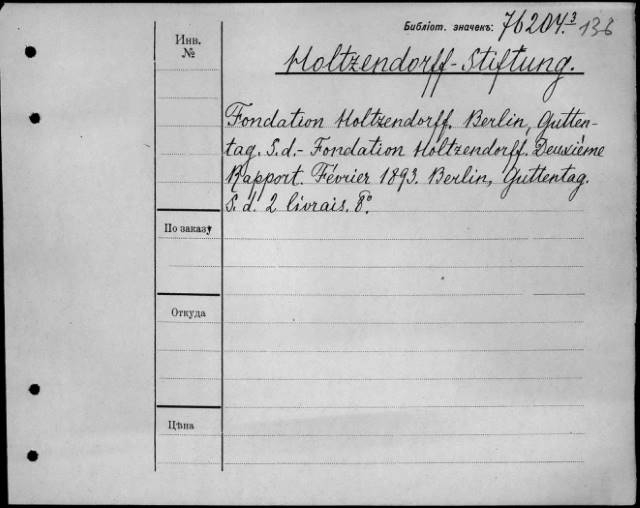 Библіот. значекъ: 76204.³ 136
Инв.
№
Holtzendorff-Stiftung.
Fondation Holtzendorff. Berlin, Gutten-
tag. S.d.- Fondation Holtzendorff. Deuxième
Rapport. Février 1893. Berlin, Guttentag.
S. d. 2 livrais. 8°.
По заказу
Откуда
Цѣна